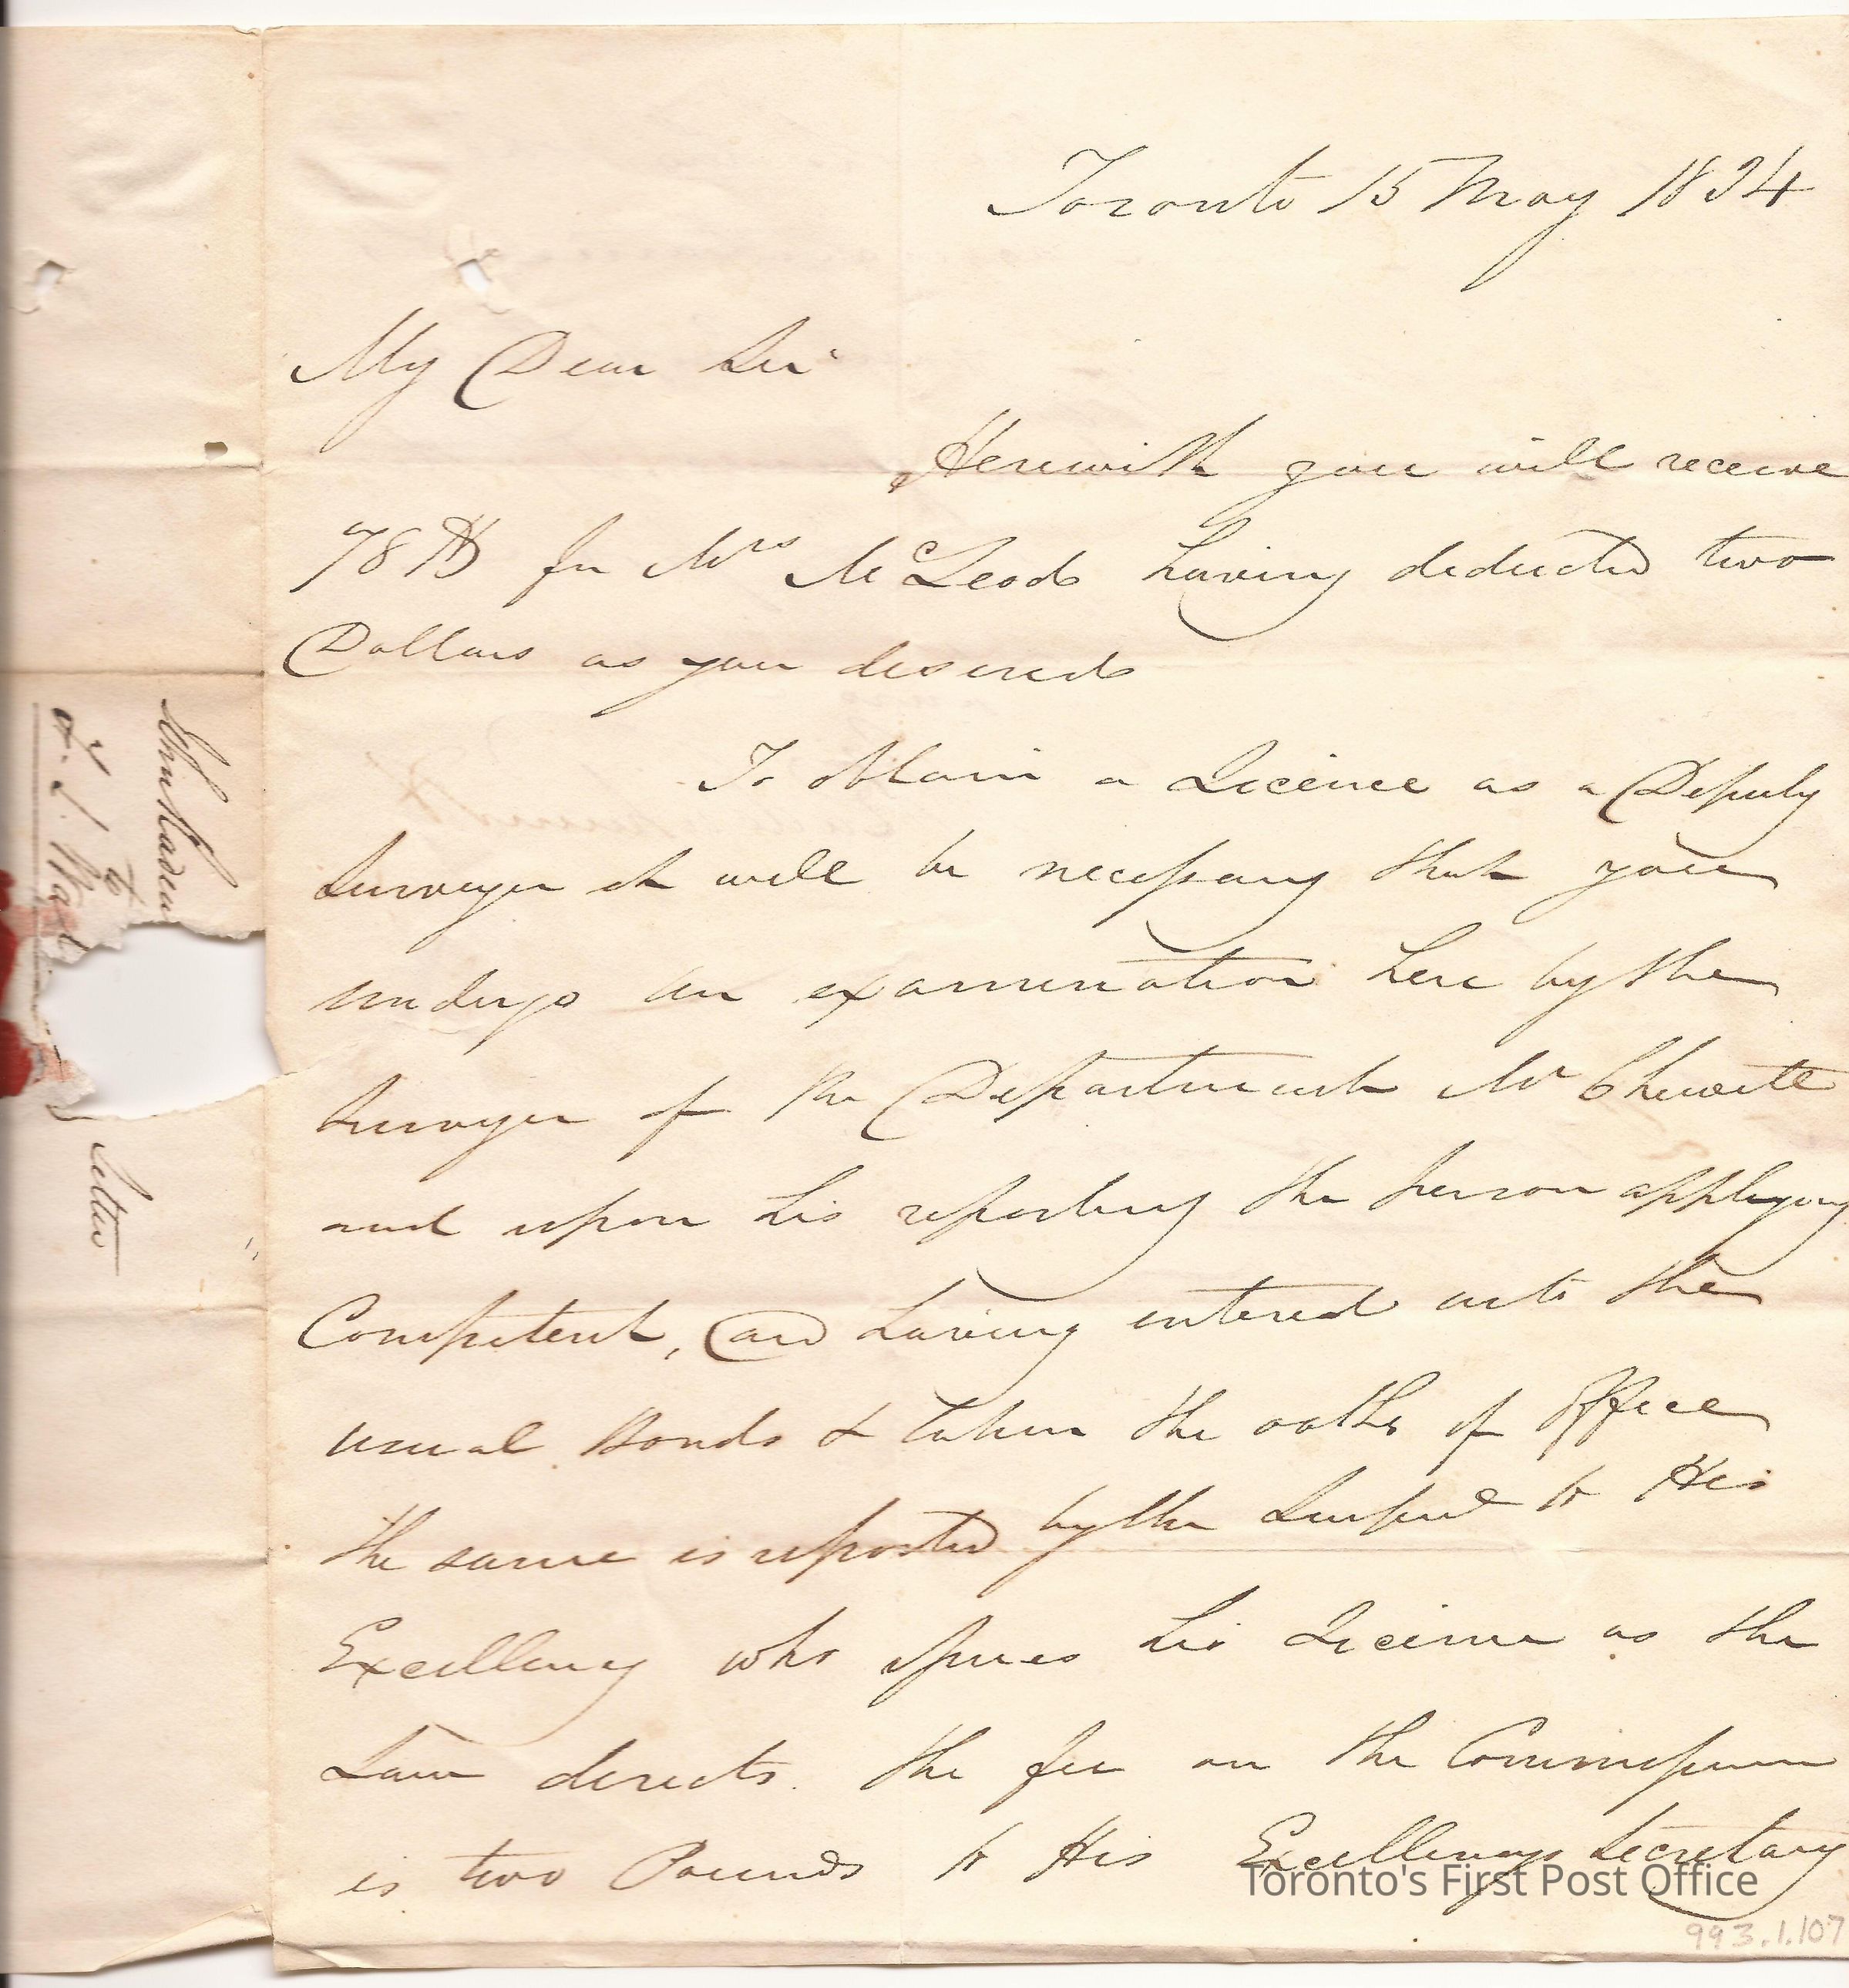 Toronto 15 May 1834
My Dear Sir
Herewith you will receive
78 for Mrs McLeod having deducted two
Dollars as you desired
To obtain a Licence as a Deputy
Surveyor it will be necessary that you
undergo an examination here by the
Surveyor of the Department Mr Chewett
and upon his reporting the person applying
Competent, and having entered into the
usual Bonds & taken the oaths of Office
the same is reported by the to His
Excellency who issues his Licence as the
Law directs. the fee on the Commission
is two Pounds to His Excellencys Secretary
to
Letter
Toronto's First Post Office
993.1.107